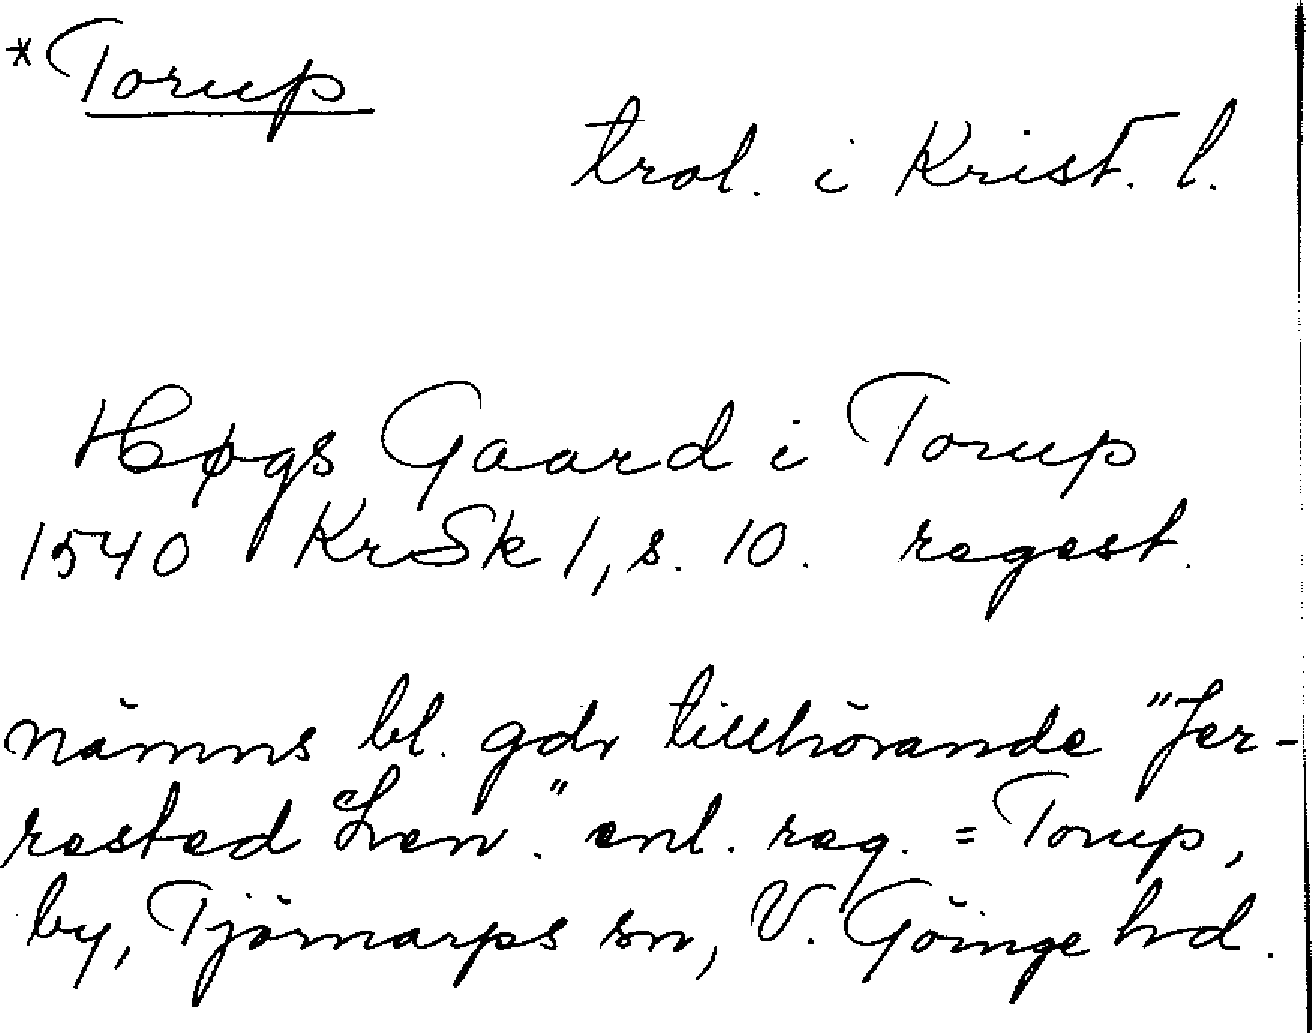 *Torup
trol. i Krist. l.
Høgs Gaard i Torup
1540 KrSk 1, s. 10. regest.
nämns bl. gdr tillhörande "Jer-
rested Len." enl. reg. = Torup,
by, Tjörnarps sn, V. Göinge hd.